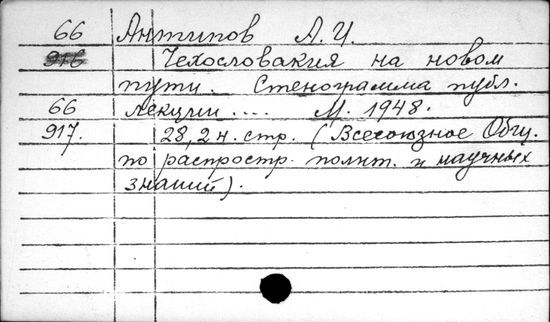 66 Антипов А. И.
916 Чехословакия на новом
пути. Стенограмма публ.
66 лекции .... М. 1948.
917. 28, 2 н. стр. (Всесоюзное Общ.
по распростр. полит. и научных
знаний).